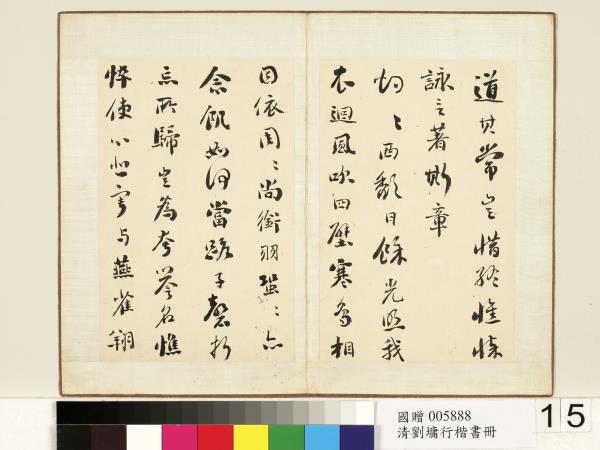 道其常豈惜終憔悴
詠言著斯章
灼〻西頹日餘光照我
衣迴風吹四壁寒鳥相
因依周〻尚銜羽蛩〻亦
念飢如何當路子磬折
忘所歸豈為夸譽名憔
悴使心悲寧與燕雀翔
國贈 005888
清劉墉行楷書冊
15